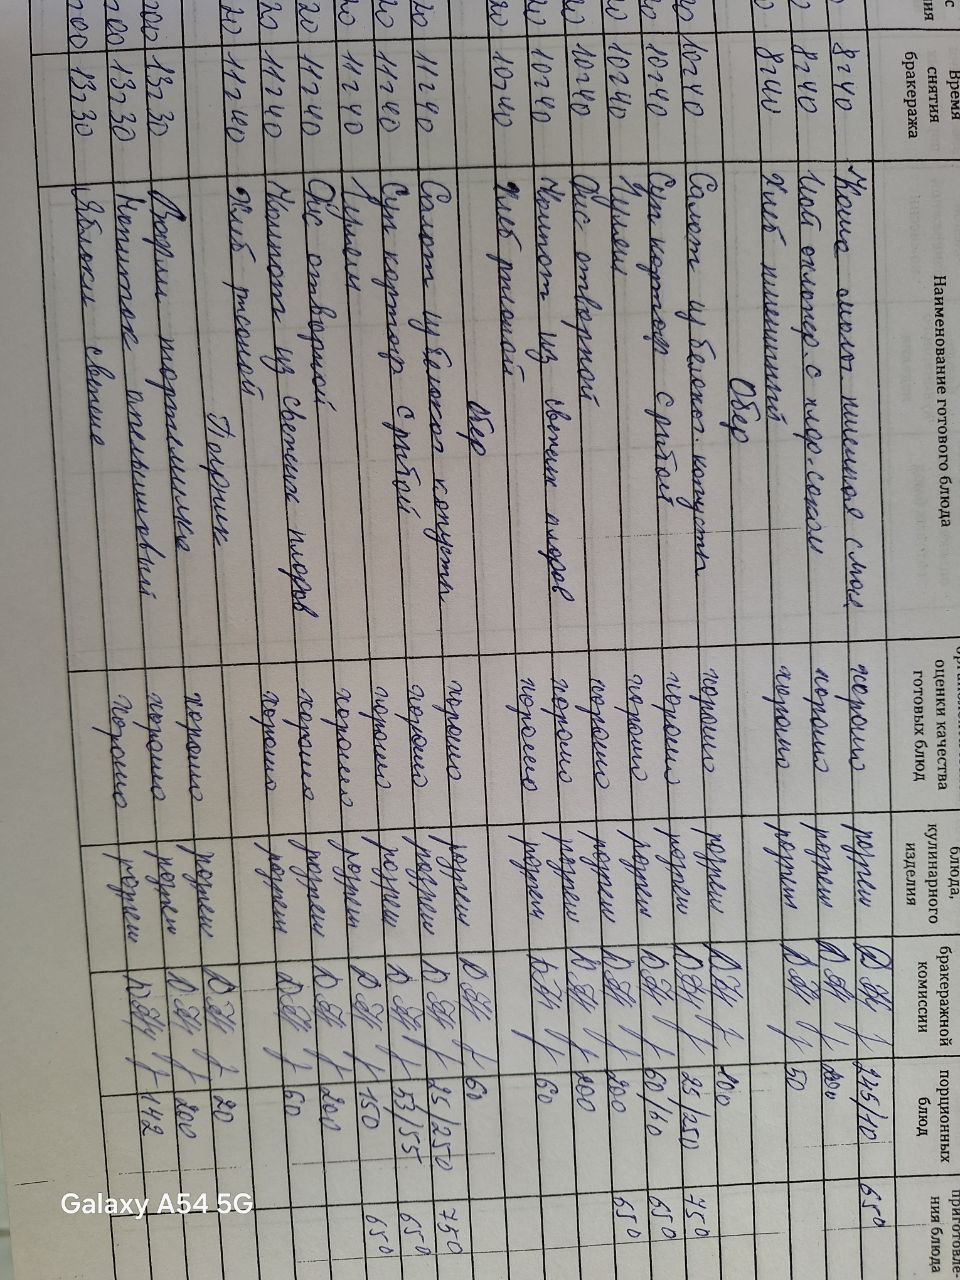 Время снятия бракеража | Наименование готового блюда | оценки качества готовых блюд | блюда, кулинарного изделия | бракеражной комиссии | порционных блюд | приготовле ния блюда
8 г 40 Каша молоч. пшенная с мол хорошо разреш 245/10 650
8 г 40 Чай с хорошо разреш 200
8 г 40 Хлеб пшеничный хорошо разреш 50
Обед
10 г 40 Салат из белокоч. капусты хорошо разреш 100
10 г 40 Суп картоф с рыбой хорошо разреш 25/250 750
10 г 40 Гуляш хорошо разреш 60/60 650
10 г 40 Рис отварной хорошо разреш 200 650
10 г 40 Компот из свежих плодов хорошо разреш 200
10 г 40 Хлеб ржаной хорошо разреш 60
Обед
11 г 40 Салат из белокоч капусты хорошо разреш 60
11 г 40 Суп картоф с рыбой хорошо разреш 25/250 750
11 г 40 Гуляш хорошо разреш 55/55 650
11 г 40 Рис отварной хорошо разреш 150 650
11 г 40 Компот из свежих плодов хорошо разреш 200
11 г 40 Хлеб ржаной хорошо разреш 60
Полдник
13 г 30 Вафли хорошо разреш 20
13 г 30 Напиток апельсиновый хорошо разреш 200
13 г 30 Яблоки свежие хорошо разреш 142
Galaxy A54 5G